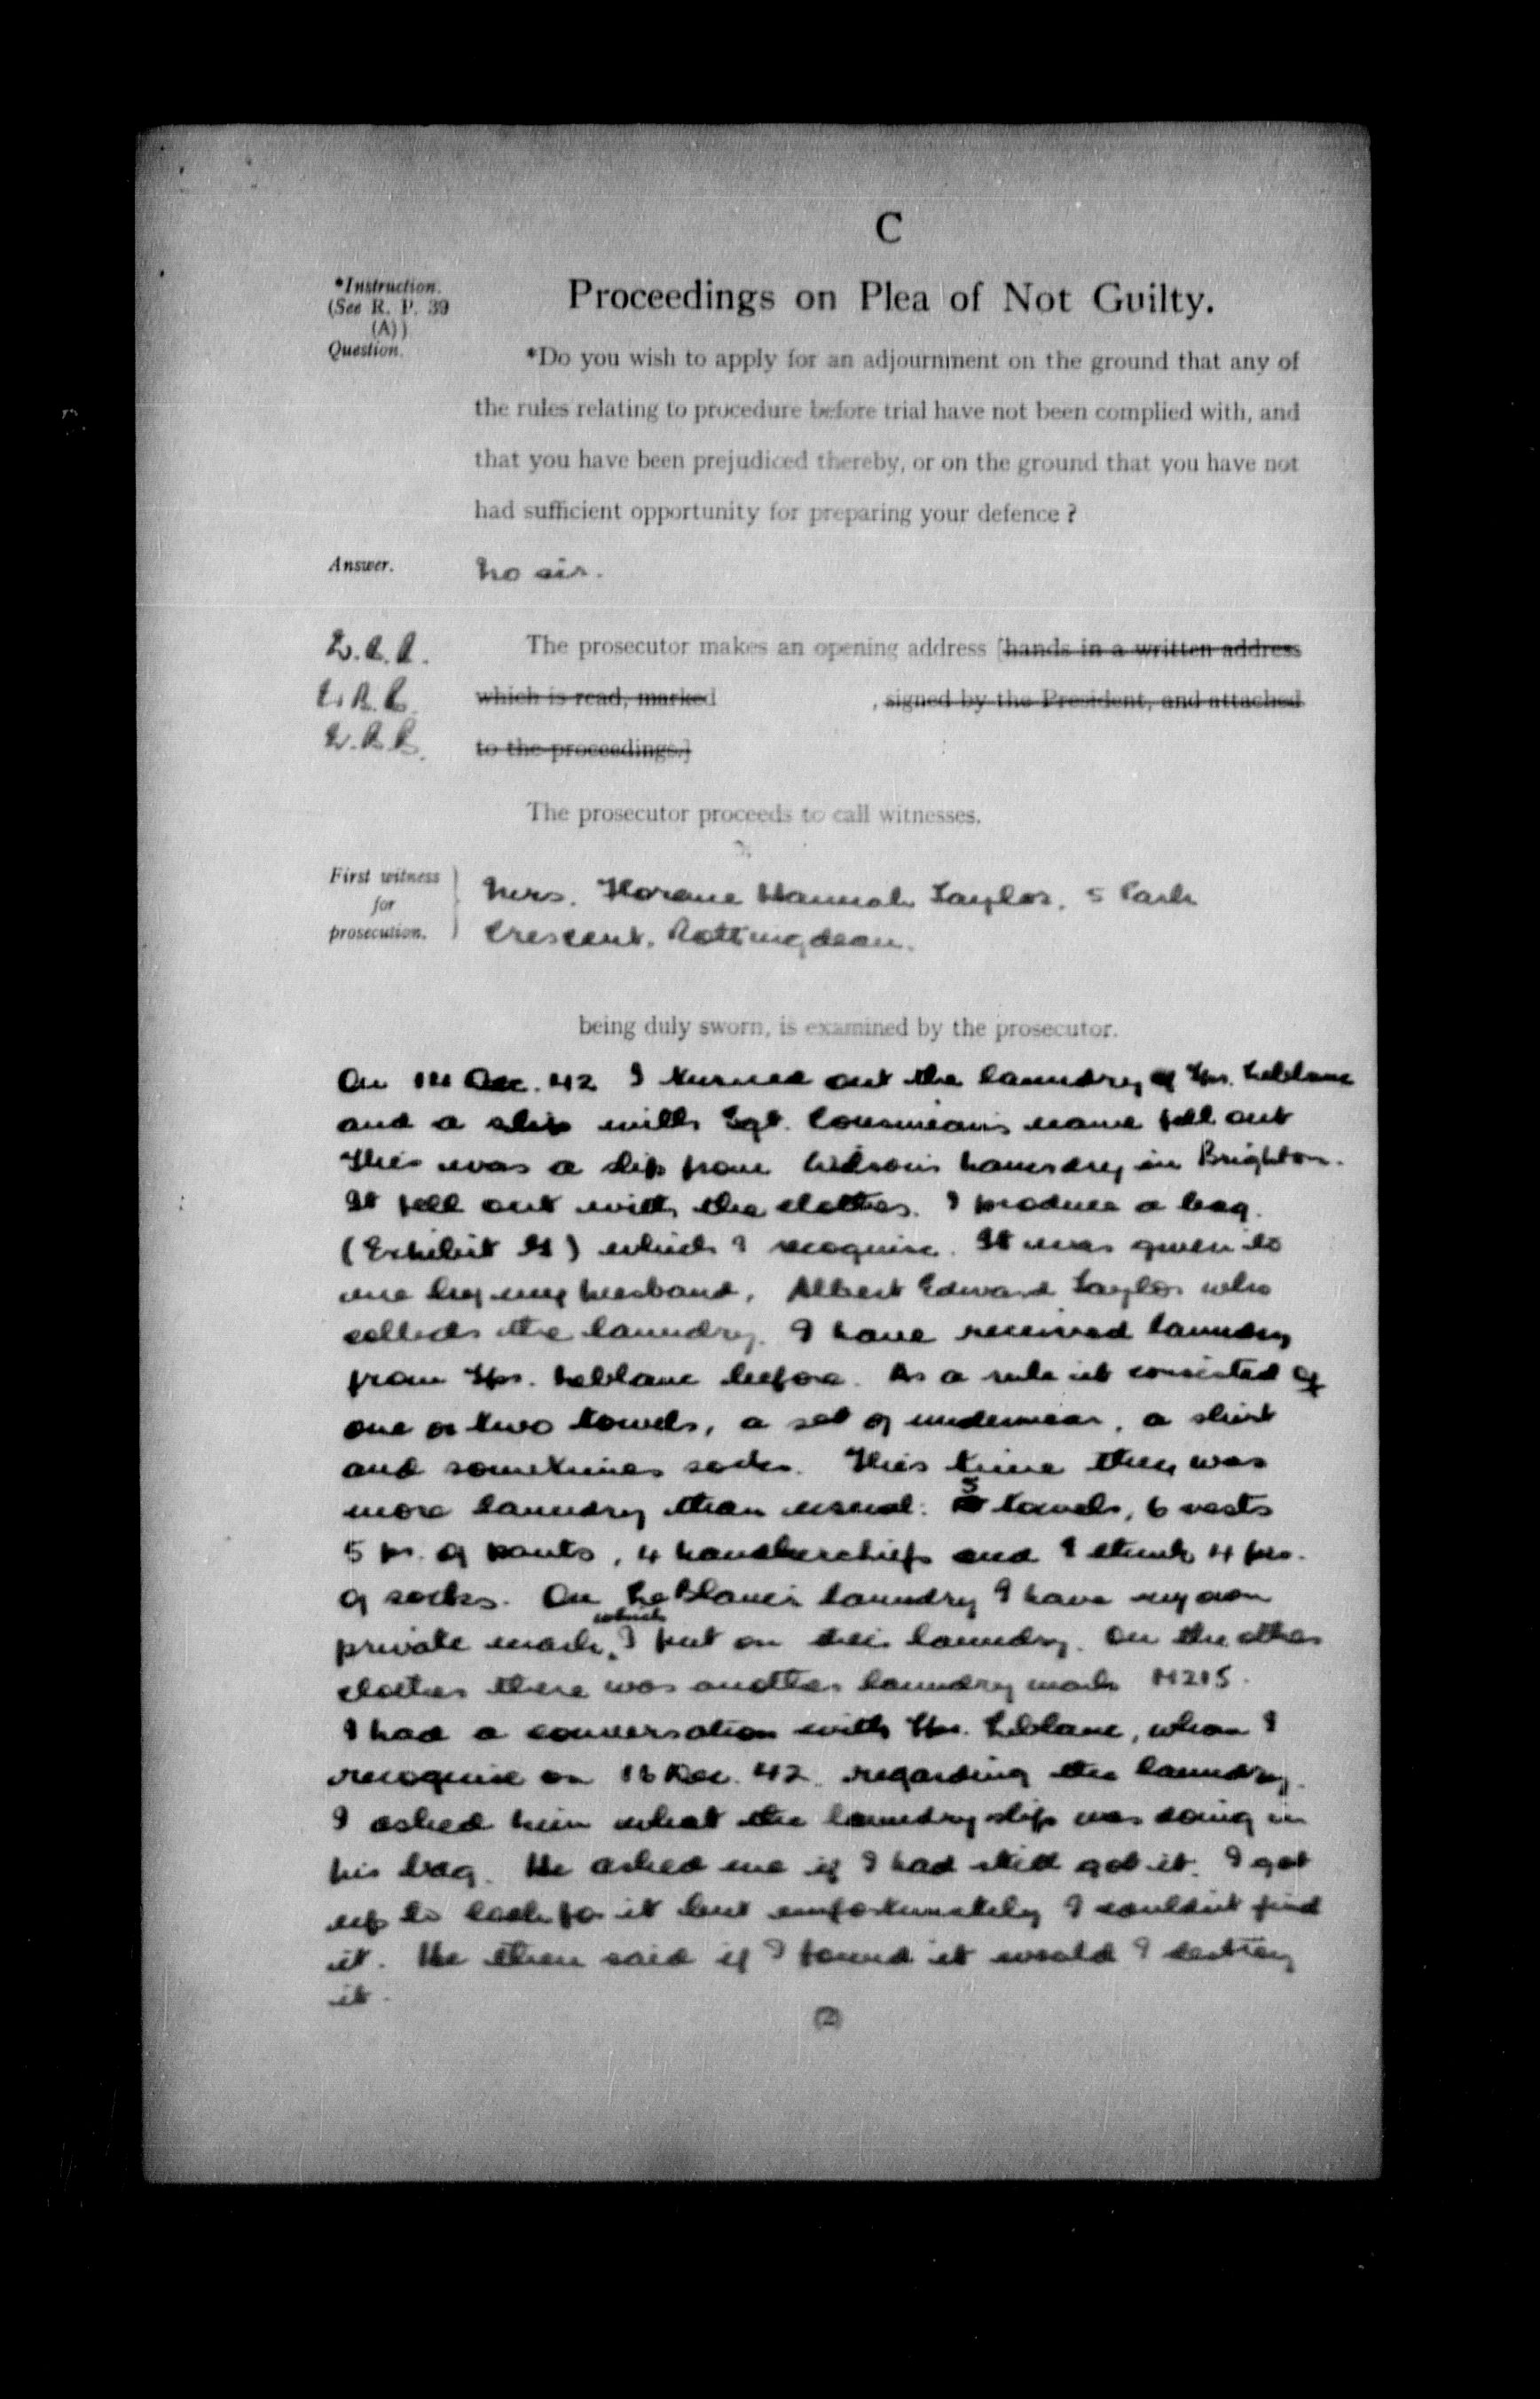 C
*Instruction.
(See R. P. 39
(A))
Question.
Proceedings on Plea of Not Guilty.
*Do you wish to apply for an adjournment on the ground that any of
the rules relating to procedure before trial have not been complied with, and
that you have been prejudiced thereby, or on the ground that you have not
had sufficient opportunity for preparing your defence ?
Answer.
No sir.
The prosecutor makes an opening address [hands in a written address
which is read, marked , signed by the President, and attached
to the proceedings.]
The prosecutor proceeds to call witnesses.
First witness
for
prosecution.
Mrs. Hannah Taylor, 5 Park
Crescent, Rottingdean.
being duly sworn, is examined by the prosecutor.
On Dec. 42 I turned out the laundry of Spr. Leblanc
and a slip with Sgt. name fell out
This was a slip from laundry in Brighton.
It fell out with the clothes. I produce a bag.
(Exhibit ) which I recognise. It was given to
me by my husband, Albert Edward Taylor who
collects the laundry. I have received laundry
from Spr. Leblanc before. As a rule it consisted of
one or two towels, a set of underwear, a shirt
and sometimes socks. This time they was
more laundry than usual: 5 towels, 6 vests
5 pr. of pants, 4 handkerchiefs and I think 4 prs.
of socks. On LeBlanc's laundry I have my own
private mark, which I put on his laundry. On the other
clothes there was another laundry mark H215.
I had a conversation with Spr. Leblanc, whom I
recognise on 16 Dec. 42. regarding the laundry.
I asked him what the laundry slip was doing in
his bag. He asked me if I had still got it. I got
up to look for it but unfortunately I couldn't find
it. He then said if I found it would I destroy
it.
(2)